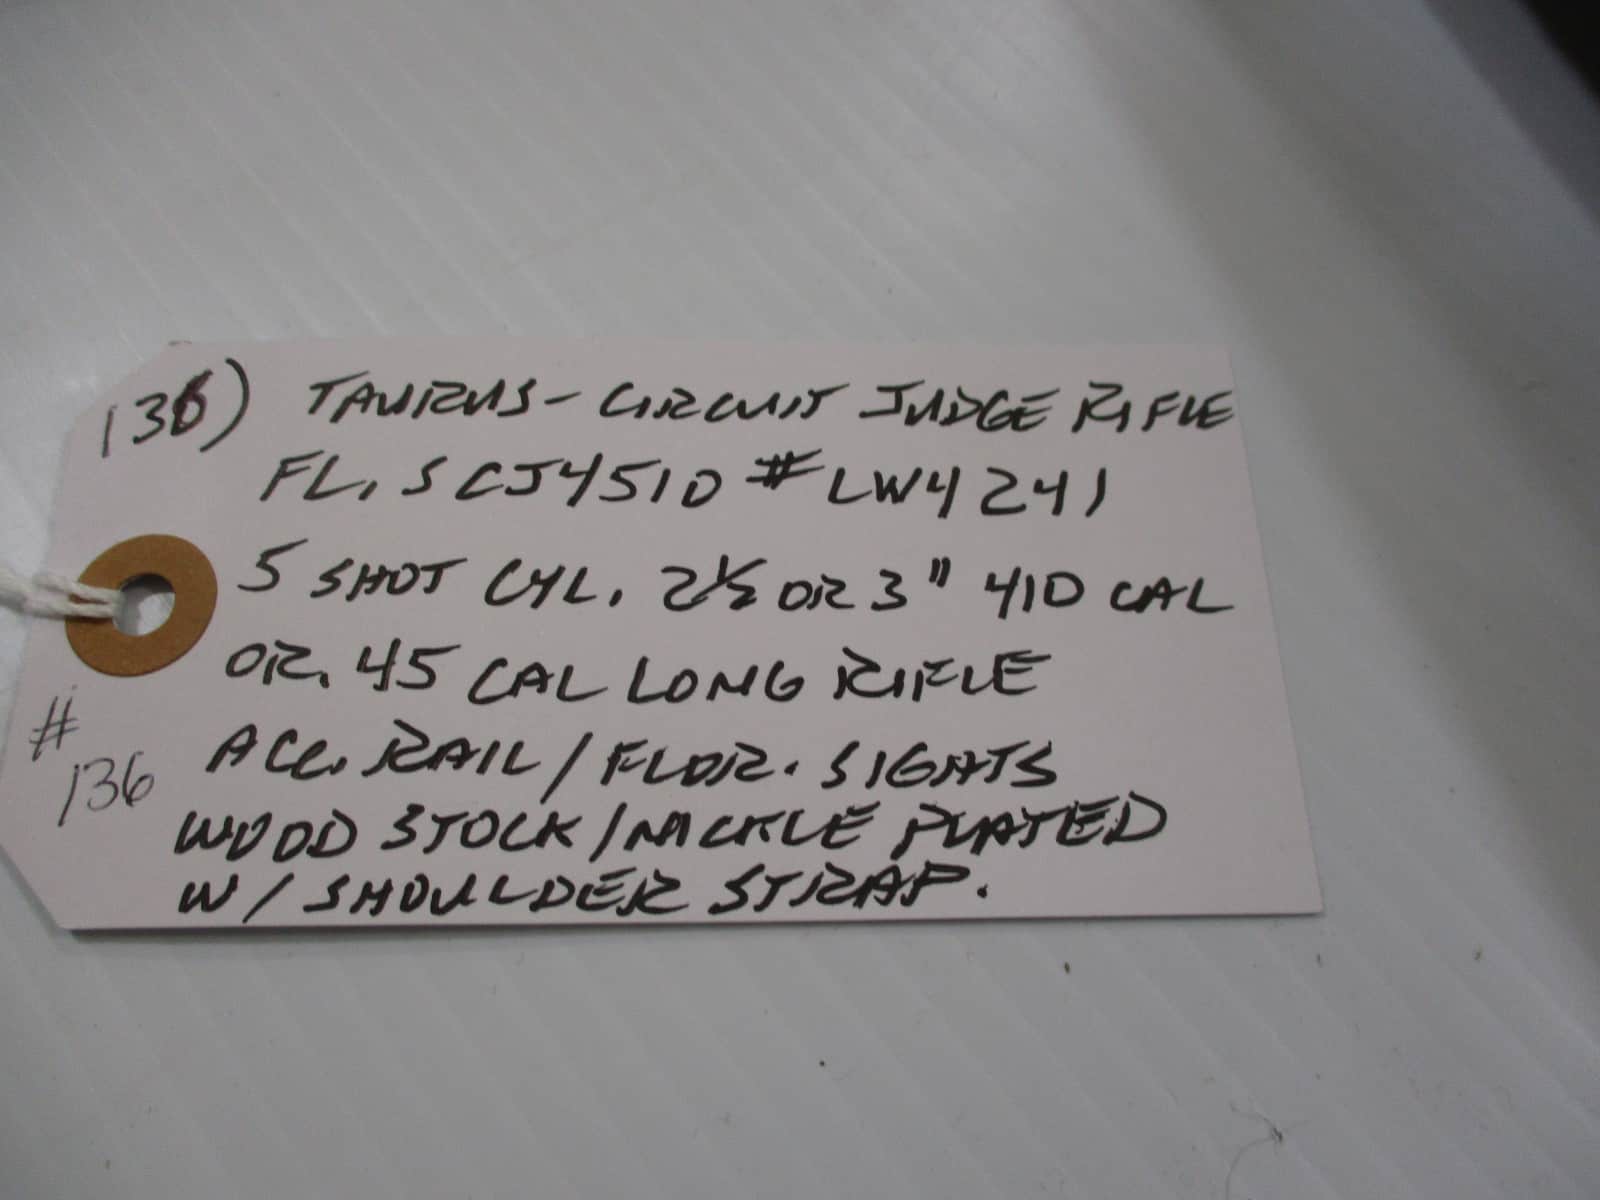 136) TAURUS - CIRCUIT JUDGE RIFLE
FL. SCJ4510 #LW4241
5 SHOT CYL. 2½ OR 3" 410 CAL
OR. 45 CAL LONG RIFLE
ACC. RAIL / FLOR. SIGHTS
WOOD STOCK / NICKLE PLATED
W/ SHOULDER STRAP.
#
136